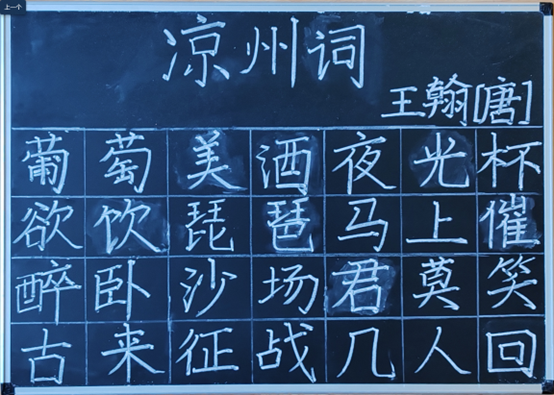 上一个
凉州词
王翰[唐]
葡萄美洒夜光杯
欲饮琵琶马上催
醉卧沙场君莫笑
古来征战几人回